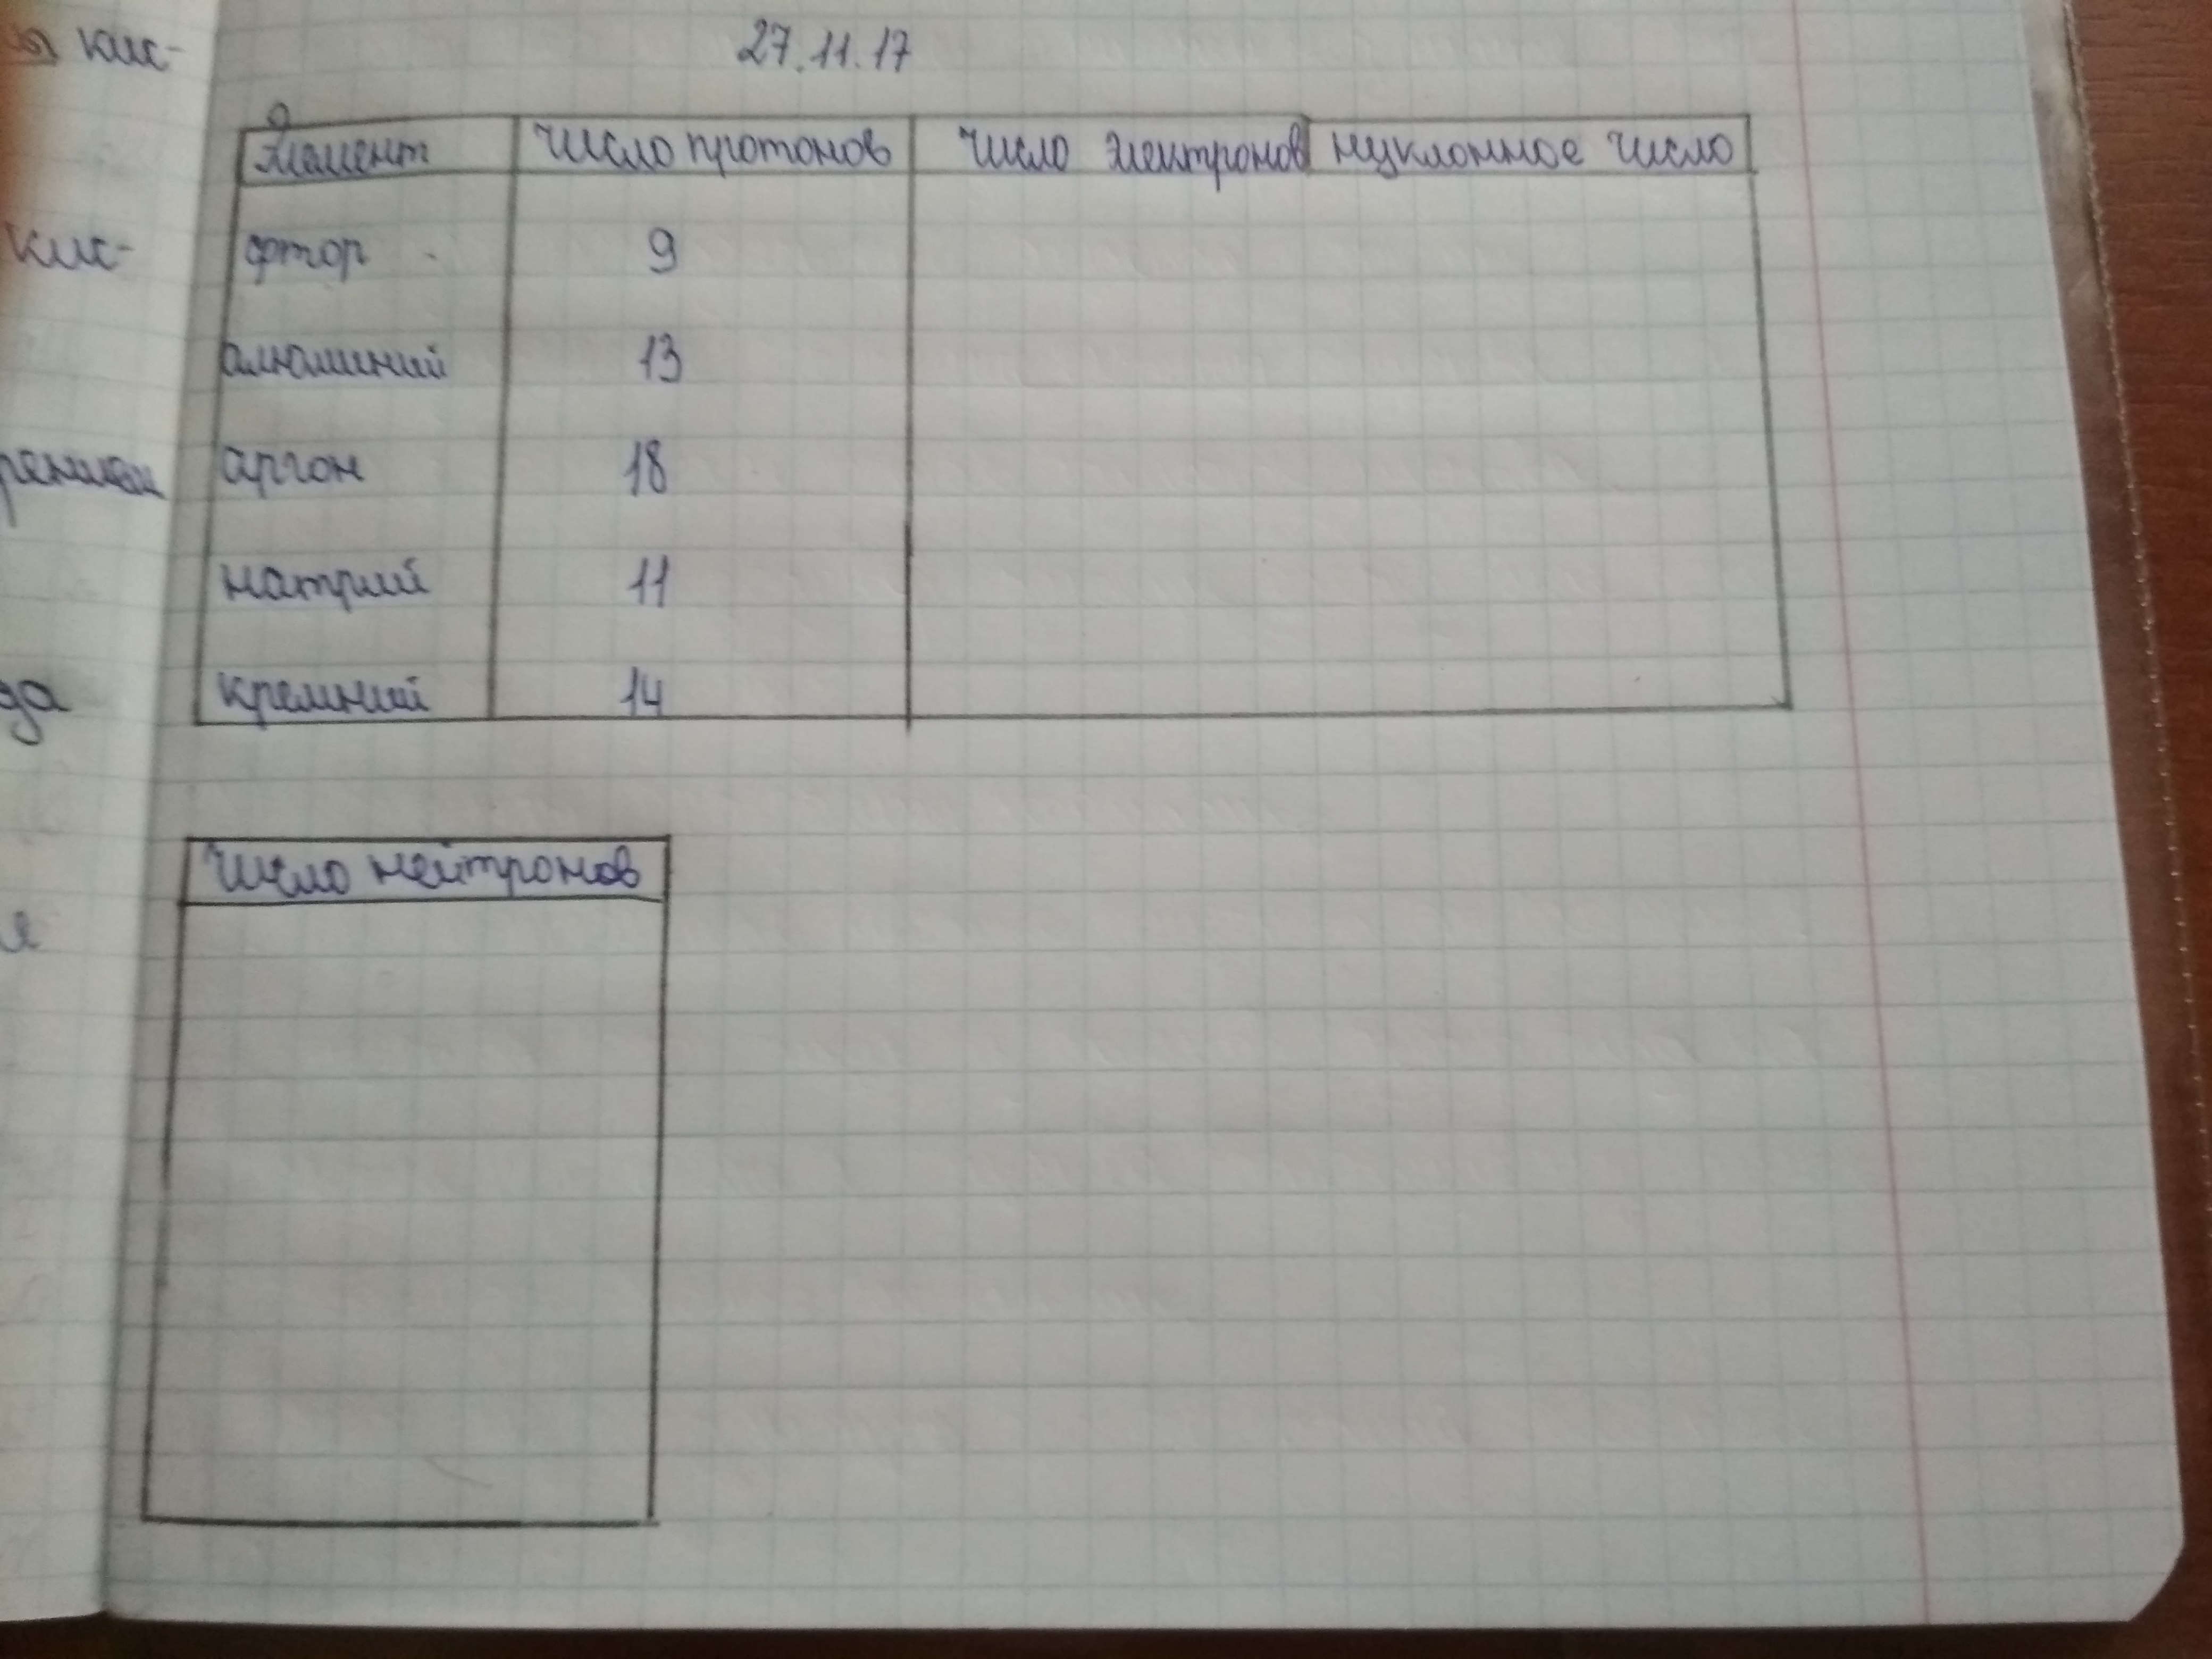 кис-
27.11.17
Элемент число протонов число электронов нуклонное число
кис-
фтор 9
алюминий 13
аргон 18
натрий 11
кремний 14
число нейтронов